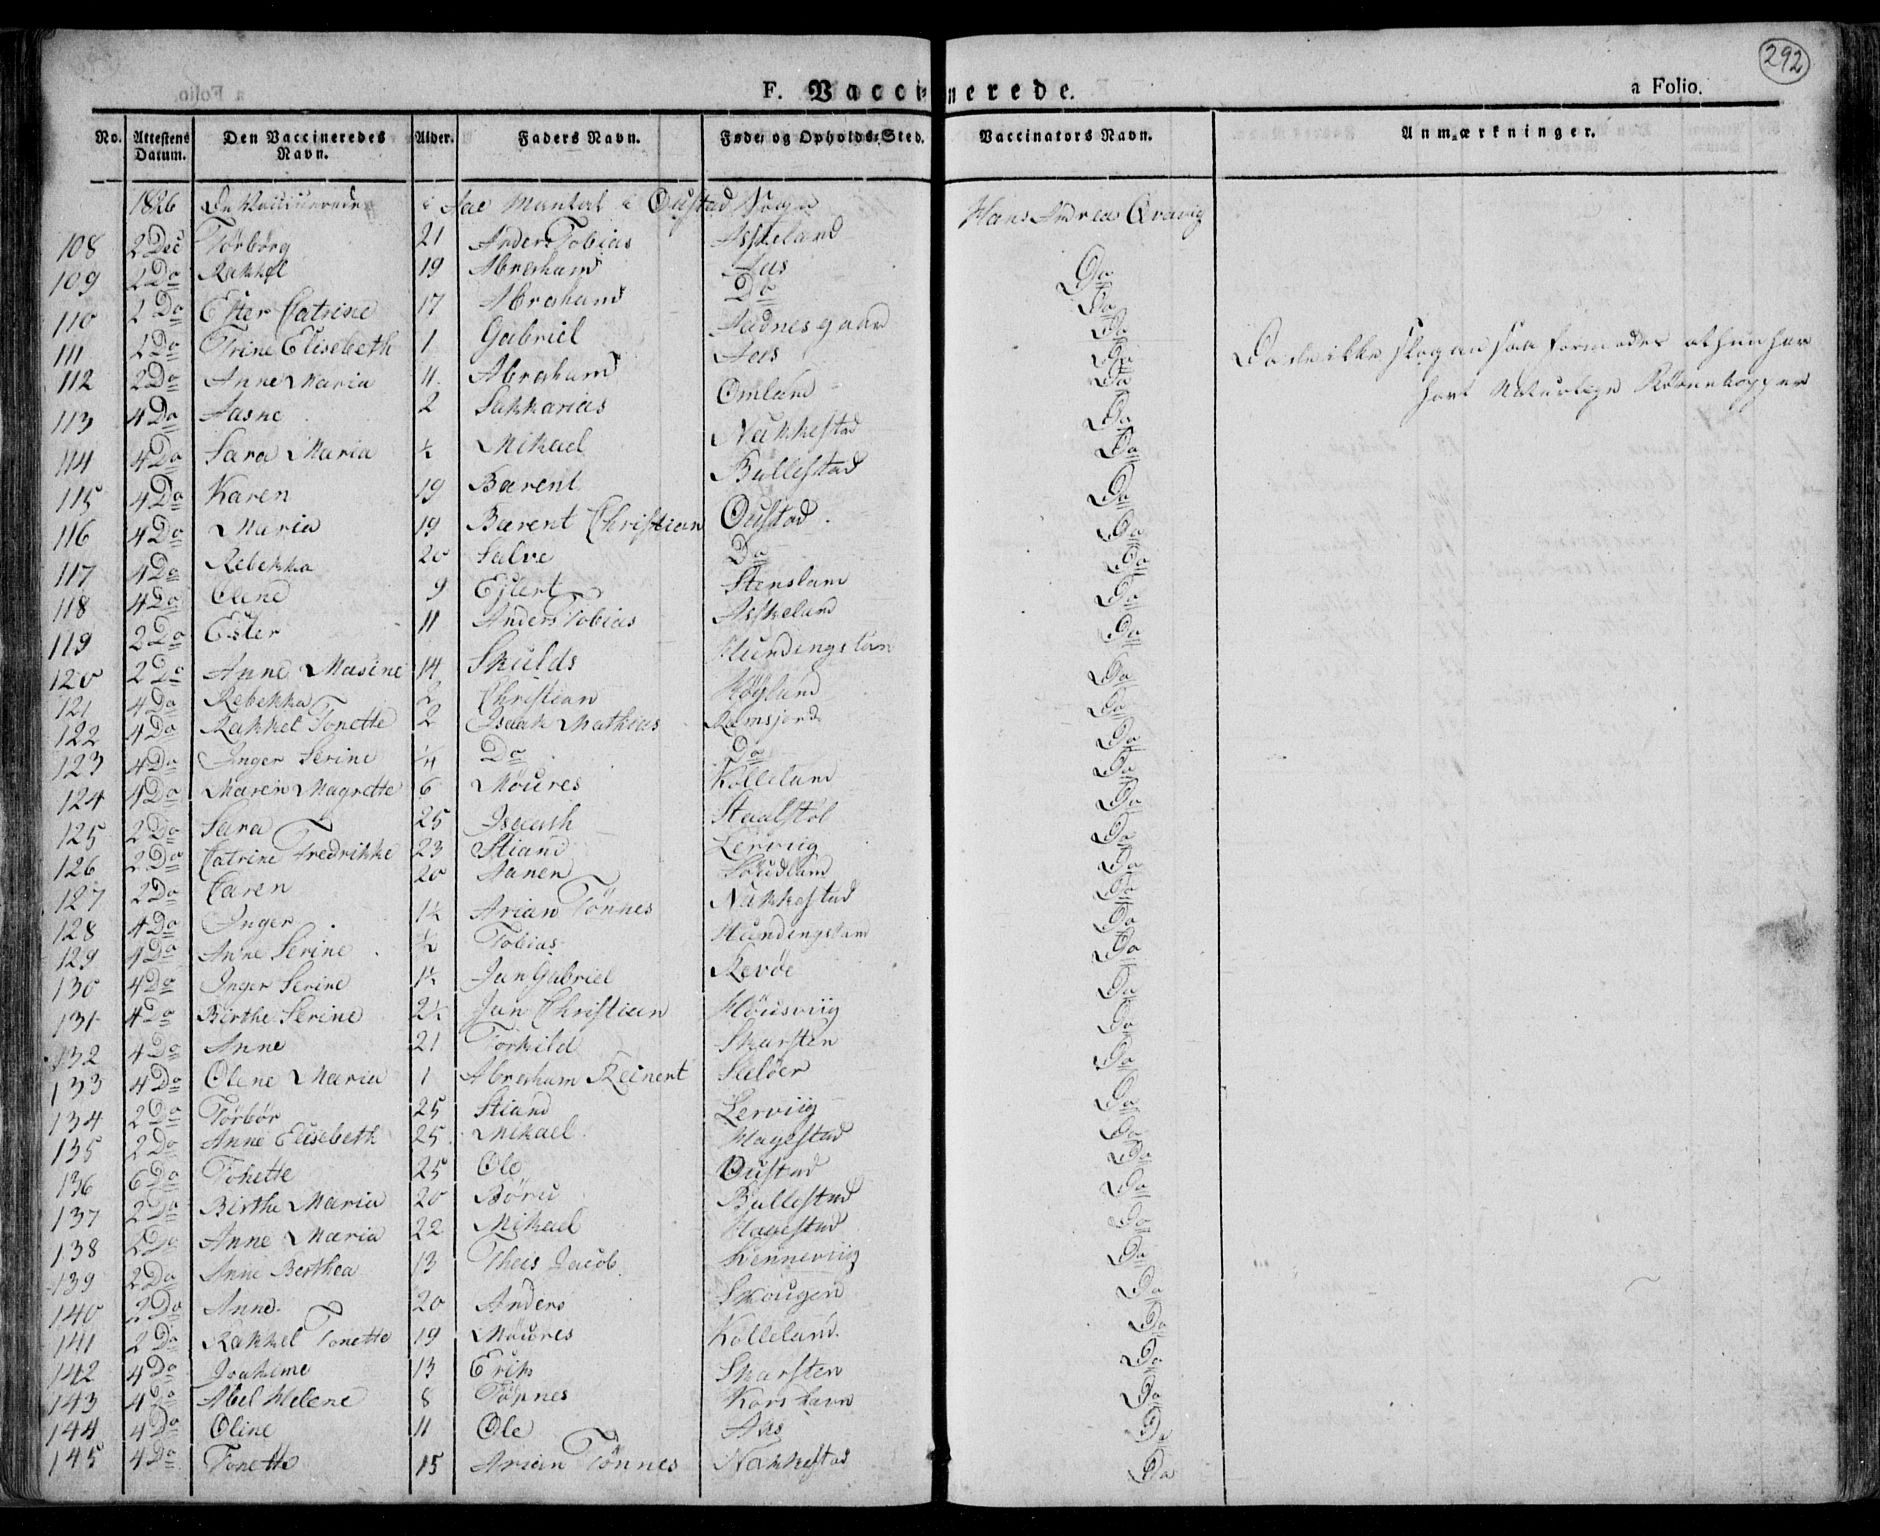 292
F. Vaccinerede.
a Folio.
No. Attestens Datum. Den Vaccineredes Navn. Alder. Faders Navn. Føde- og Opholds-Sted. Vaccinators Navn. Anmærkninger.
1826 De Vaccinerede i Aae Mantal i Oustad Sogn Hans Andreas Qvavig
108 2 Dec Torborg 21 Anders Tobias Asskeland
109 2 Do Rakkel 19 Abraham Aas Do
110 2 Do Ester Catrine 17 Abraham Do Do
111 2 Do Trine Elisebeth 1 Gabriel Jadnesgaar Do
112 2 Do Anne Maria 4 Abraham Aas Do
113 4 Do Aasne 2 Sakkarias Omland Do
114 4 Do Sara Maria ½ Mikael Nakkestad Do
115 4 Do Karen 19 Bærent Bullestad Do
116 4 Do Maria 19 Bærent Christian Oustad Do
117 4 Do Rebekka 20 Salve Do Do
118 4 Do Oline 9 Eilert Stensland Do
119 2 Do Ester 11 Anders Tobias Asskeland Do
120 2 Do Anne Masine 14 Skulds Hundingsland Do
121 4 Do Rebekka 2 Christian Høyland Do
122 4 Do Rakkel Tonette 2 Isaak Mathias Ramsjord Do
123 4 Do Inger Serine ¼ Do Do Do
124 4 Do Maren Magrette 6 Moures Kolleland Do
125 2 Do Sara 25 Isaach Staalstøl Do
126 2 Do Catrine Fredrikke 23 Stiand Lerviig Do
127 2 Do Caren 20 Aanen Soudland Do
128 4 Do Inger 1½ Arian Tønnes Nakkestad Do
129 4 Do Anne Serine ½ Tobias Hundingsland Do
130 4 Do Inger Serine 1½ Jan Gabriel Revøe Do
131 4 Do Birthe Serine 2½ Jan Christian Housviig Do
132 4 Do Anne 21 Torkild Skarsten Do
133 4 Do Olene Maria 1 Abraham Reinert Seløer Do
134 2 Do Torbor 25 Stiand Lerviig Do
135 2 Do Anne Elisebeth 25 Mikael Hagestad Do
136 6 Do Tonette 25 Ole Oustad Do
137 2 Do Birthe Maria 20 Børu Bullestad Do
138 2 Do Anne Maria 22 Mikael Hagestad Do
139 2 Do Anne Berthea 13 Thees Jacob Kenneviig Do
140 2 Do Anne 20 Anders Skougen Do
141 2 Do Rakkel Tonette 19 Moures Kolleland Do
142 4 Do Joakime 13 Erik Skarsten Do
143 4 Do Abel Helene 8 Tønnes Korshavn Do
144 4 Do Oline 11 Ole Aas Do
145 4 Do Tonette 15 Arian Tønnes Nakkestad Do
Da de ikke slog an saa formodes at hun har
havt Naturlige Børnekopper